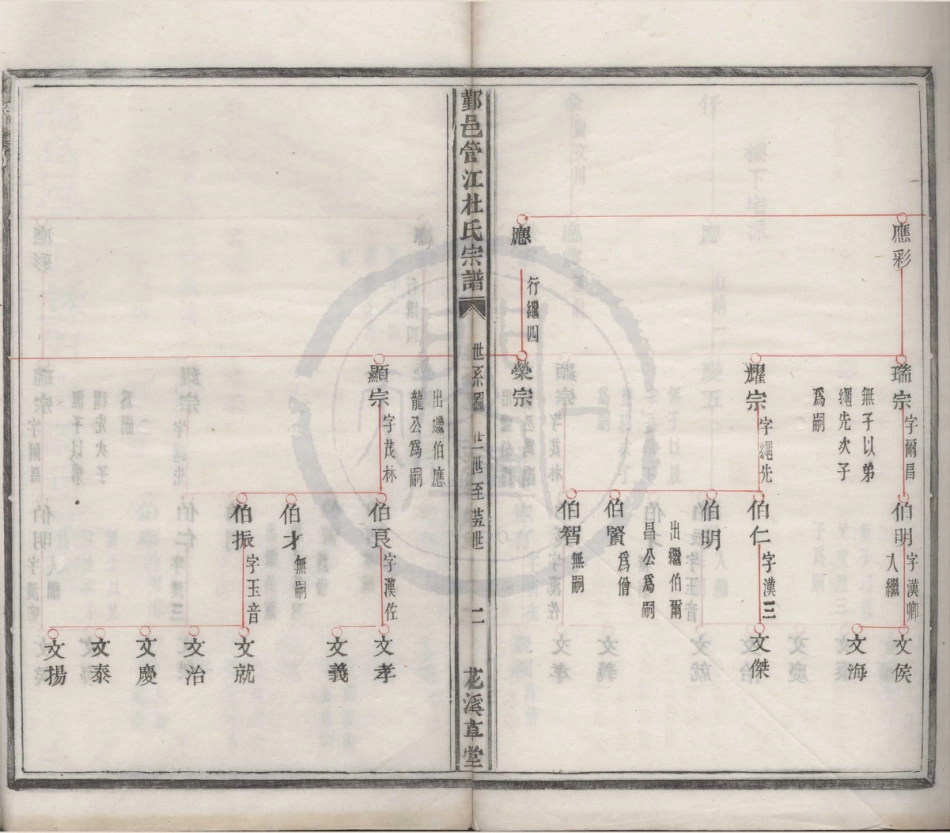 應彩
瑞宗
字爾昌
無子以弟
繩先次子
爲嗣
伯明
字漢卿
入繼
文侯
文海
耀宗
字繩先
伯仁
字漢三
文傑
伯明
出繼伯爾
昌公爲嗣
伯賢
爲僧
伯智
無嗣
應
行繼四
榮宗
出繼伯應
龍公爲嗣
鄞邑管江杜氏宗譜
世系圖
世至
世
二
花溪直堂
顯宗
字茂林
伯良
字漢佐
文孝
文義
伯才
無嗣
伯振
字玉音
文就
文治
文慶
文泰
文揚